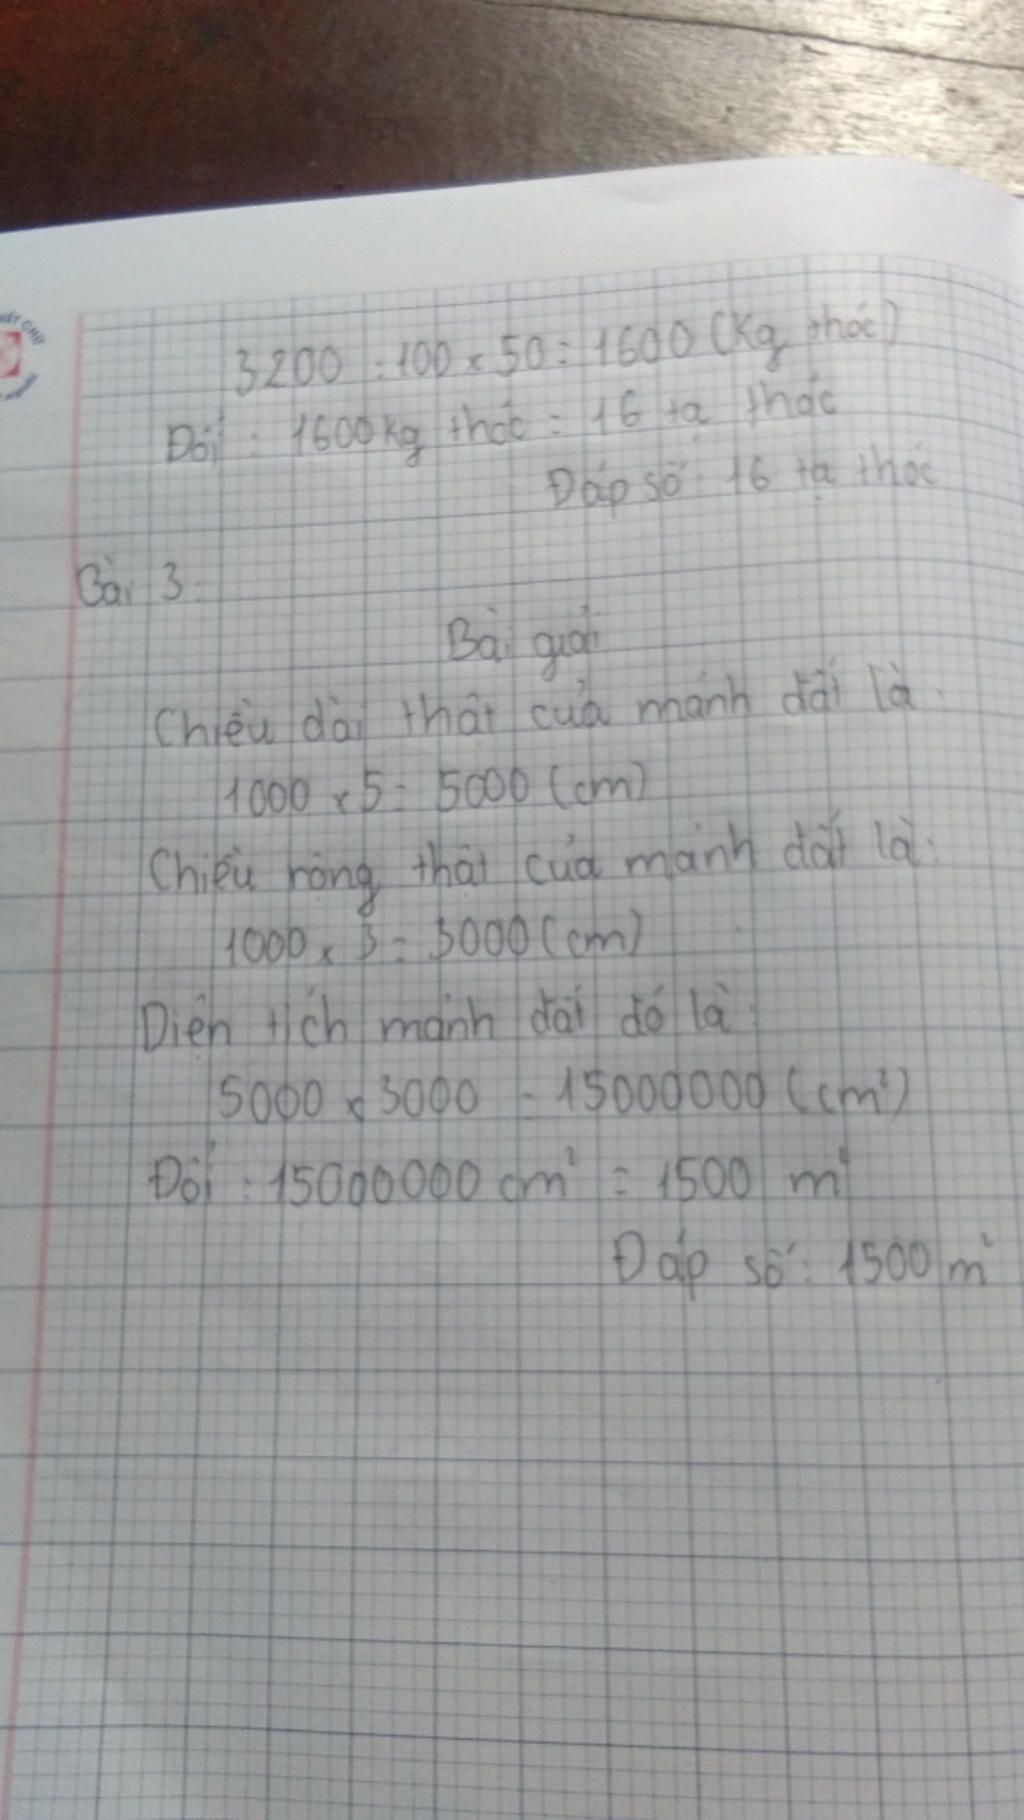 3200 : 100 x 50 = 1600 (Kg thóc)
Đổi : 1600 kg thóc = 16 tạ thóc
Đáp số : 16 tạ thóc
Bài 3 :
Bài giải
Chiều dài thật của mảnh đất là :
1000 x 5 = 5000 (cm)
Chiều rộng thật của mảnh đất là :
1000 x 3 = 3000 (cm)
Diện tích mảnh đất đó là :
5000 x 3000 = 15000000 (cm²)
Đổi : 15000000 cm² = 1500 m²
Đáp số : 1500 m²